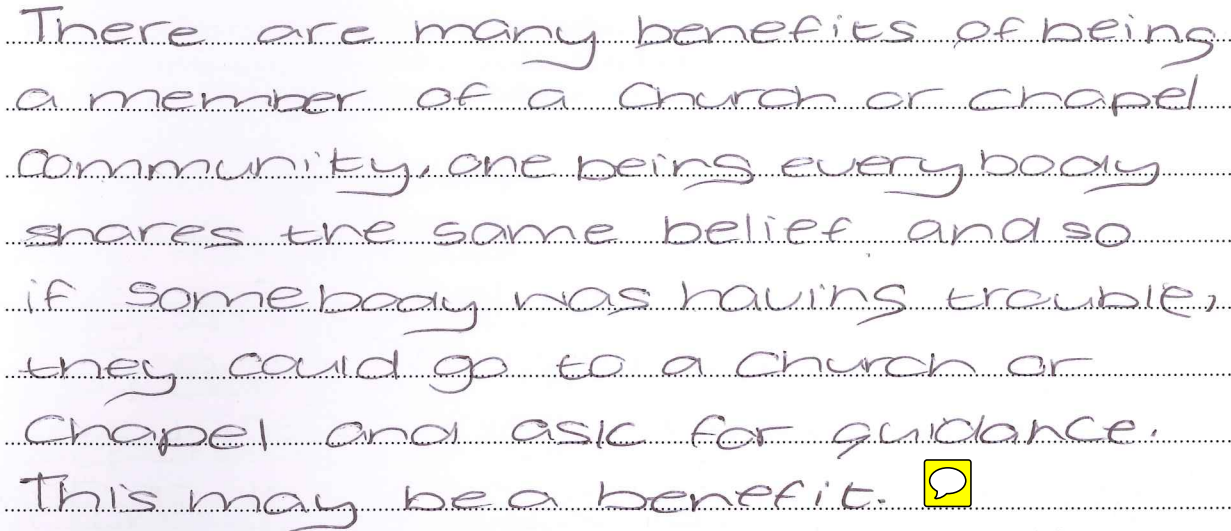 There are many benefits of being
a member of a Church or chapel
Community, one being everybody
shares the same belief and so
if somebody was having trouble,
they could go to a Church or
Chapel and ask for guidance.
This may be a benefit.